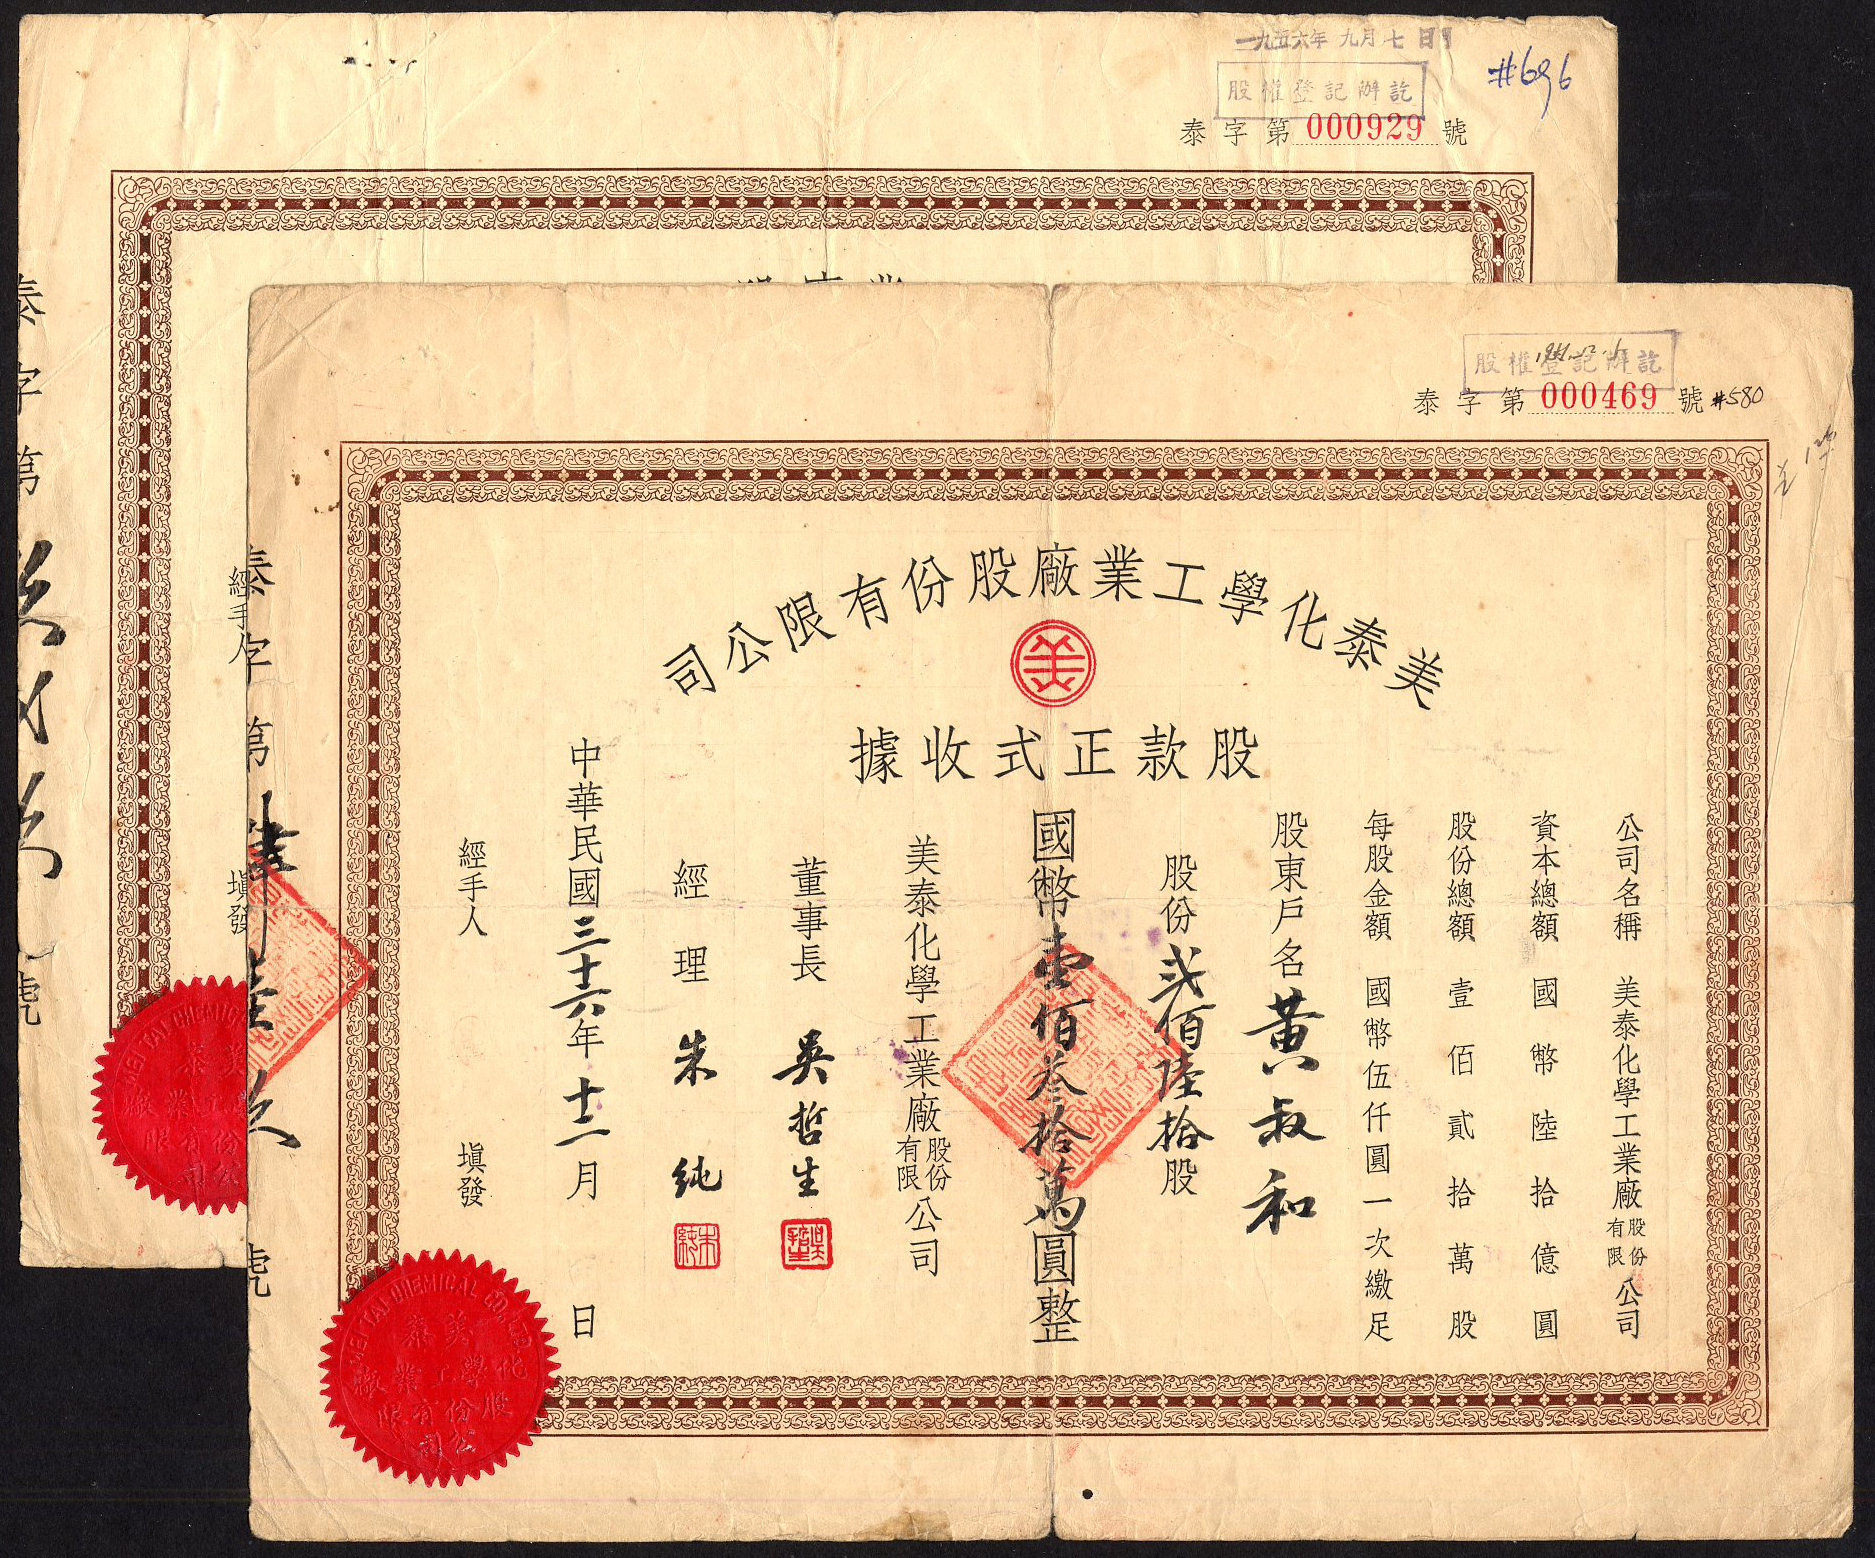 一九五六年九月七日
股權登記辦訖
#696
泰字第000929號
經手人
填發
泰字第
號
股權登記辦訖
泰字第000469號 #580
美泰化學工業廠股份有限公司
美
股款正式收據
公司名稱 美泰化學工業廠股份有限公司
資本總額 國幣陸拾億圓
股份總額 壹佰貳拾萬股
每股金額 國幣伍仟圓一次繳足
股東戶名 黄叔和
股份貮佰陸拾股
國幣壹佰叁拾萬圓整
美泰化學工業廠股份有限公司
董事長 吳哲生
經理 朱純
朱純
中華民國三十六年十二月 日
經手人 填發
泰字第
號
MEI TAI CHEMICAL CO.
美泰
化學工業廠
股份有限
公司